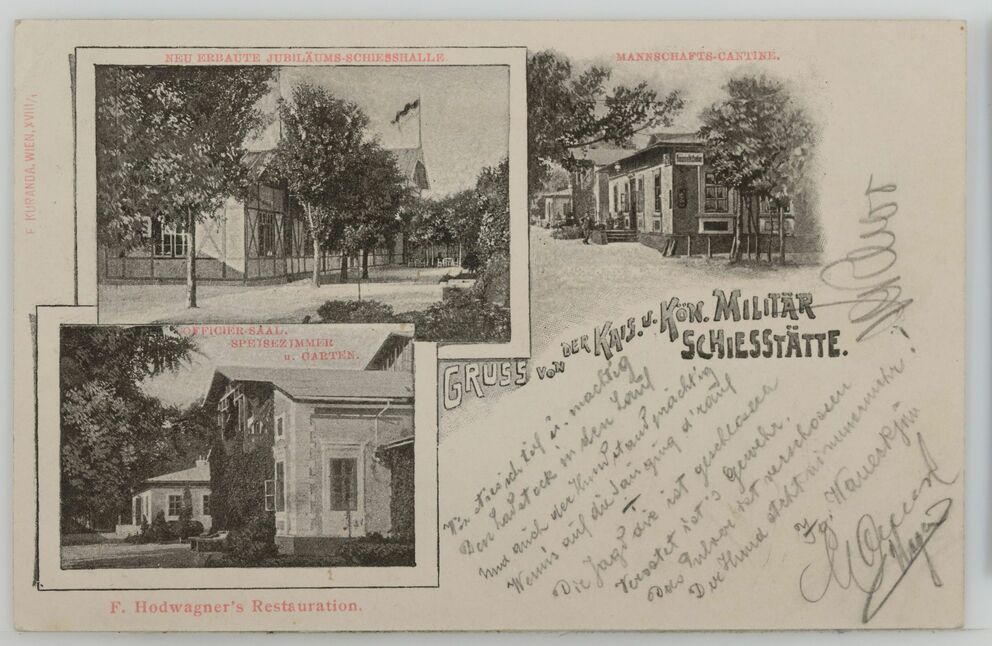 NEU ERBAUTE JUBILÄUMS-SCHIESSHALLE
MANNSCHAFTS-CANTINE.
F. KURANDA, WIEN, XVIII/1
OFFICIER-SAAL.
SPEISEZIMMER
u. GARTEN.
GRUSS VON DER KAIS. u. KÖN. MILITÄR
SCHIESSTÄTTE.
Wie stieß ich tief u. mächtig
Den Ladstock in den Lauf
Und auch der Hund, so prächtig
Wenn's auf die Jagd ging d'rauf
Die Jagd die ist geschlossen
Verrostet ist's Gewehr.
Das Pulver ist verschossen
Der Hund steht nimmermehr!
F. Hodwagner's Restauration.